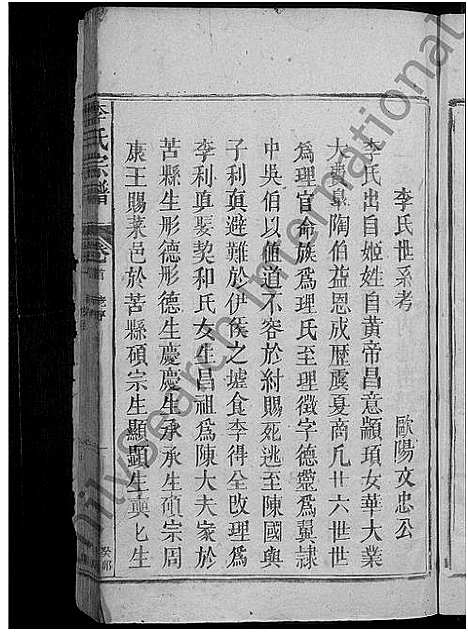 李氏世系考
歐陽文忠公
李氏出自姬姓自黃帝昌意顓頊女華大業
大費臯陶伯益恩成歷虞夏商凡廿六世世
爲理官命族爲理氏至理徵字德靈爲翼隸
中吳伯以值道不容於紂賜死逃至陳國與
子利眞避難於伊侯之墟食李得全改理爲
李利眞娶契和氏女生昌祖爲陳大夫家於
苦縣生彤德彤德生慶慶生承承生碩宗周
康王賜菜邑於苦縣碩宗生顯顯生
生
李氏宗譜
卷首
familysearch international